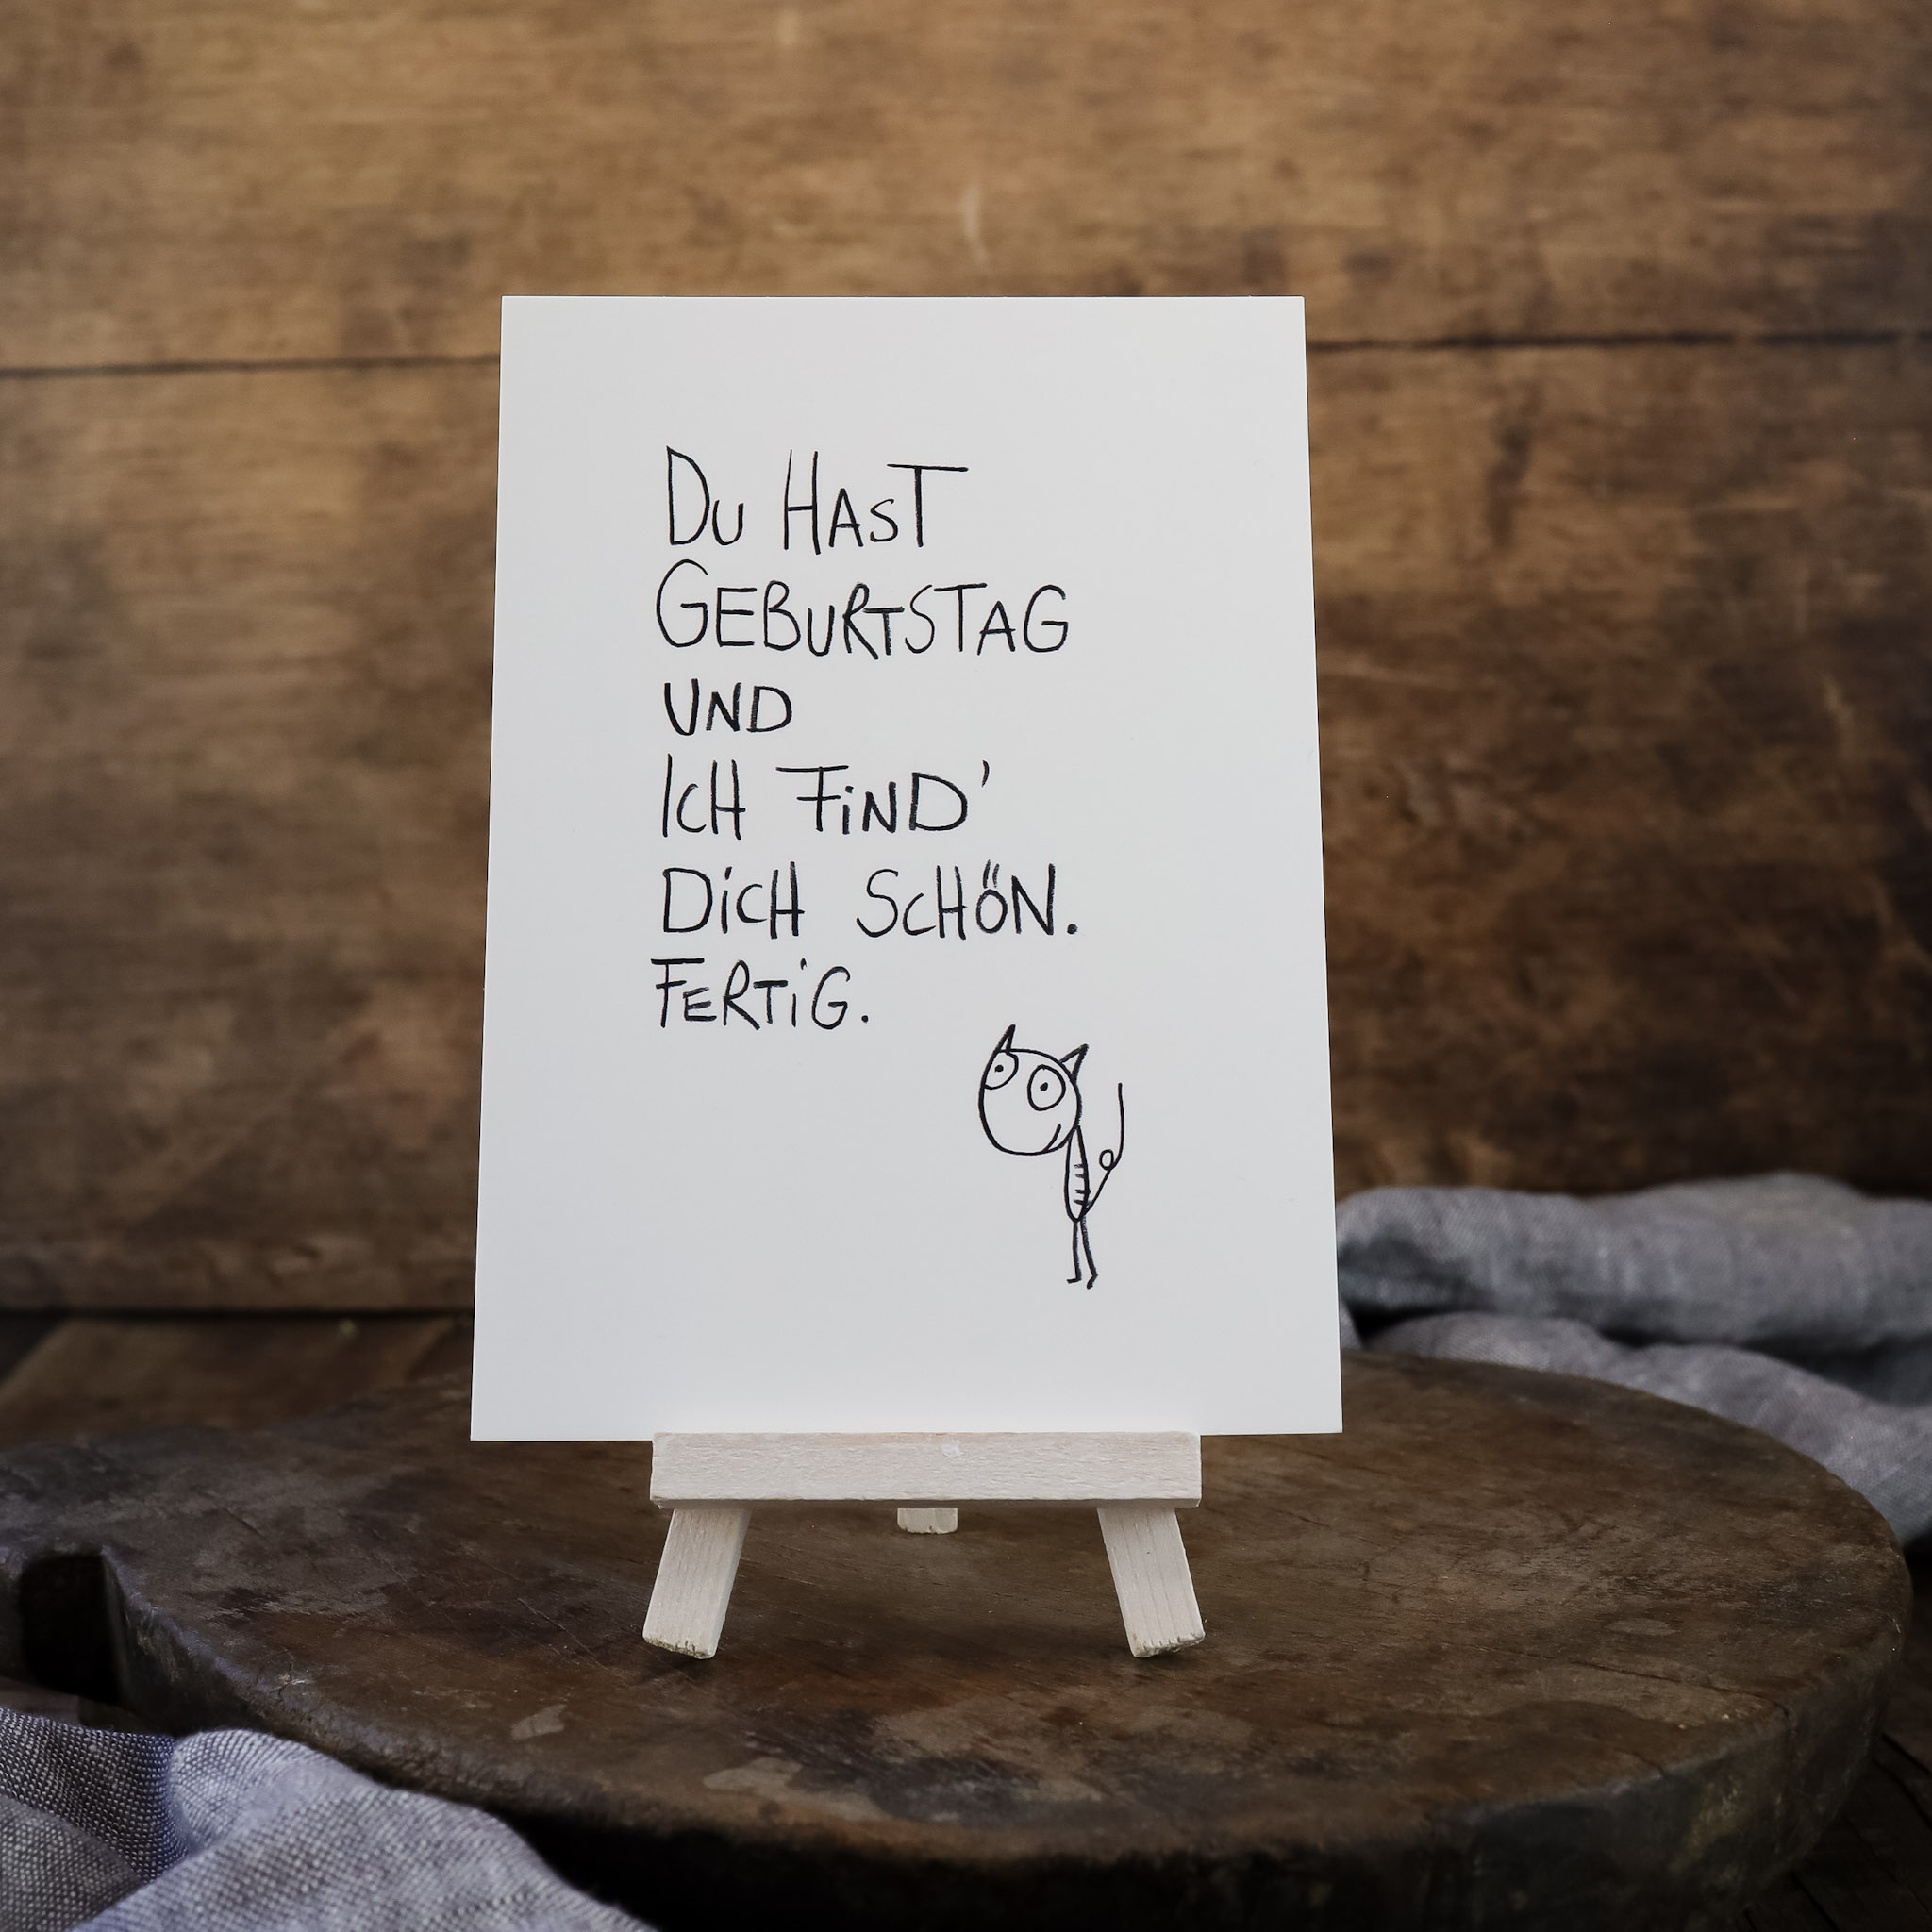 Du HAST
GEBURTSTAG
UND
ICH FIND'
DICH SCHÖN.
FERTIG.